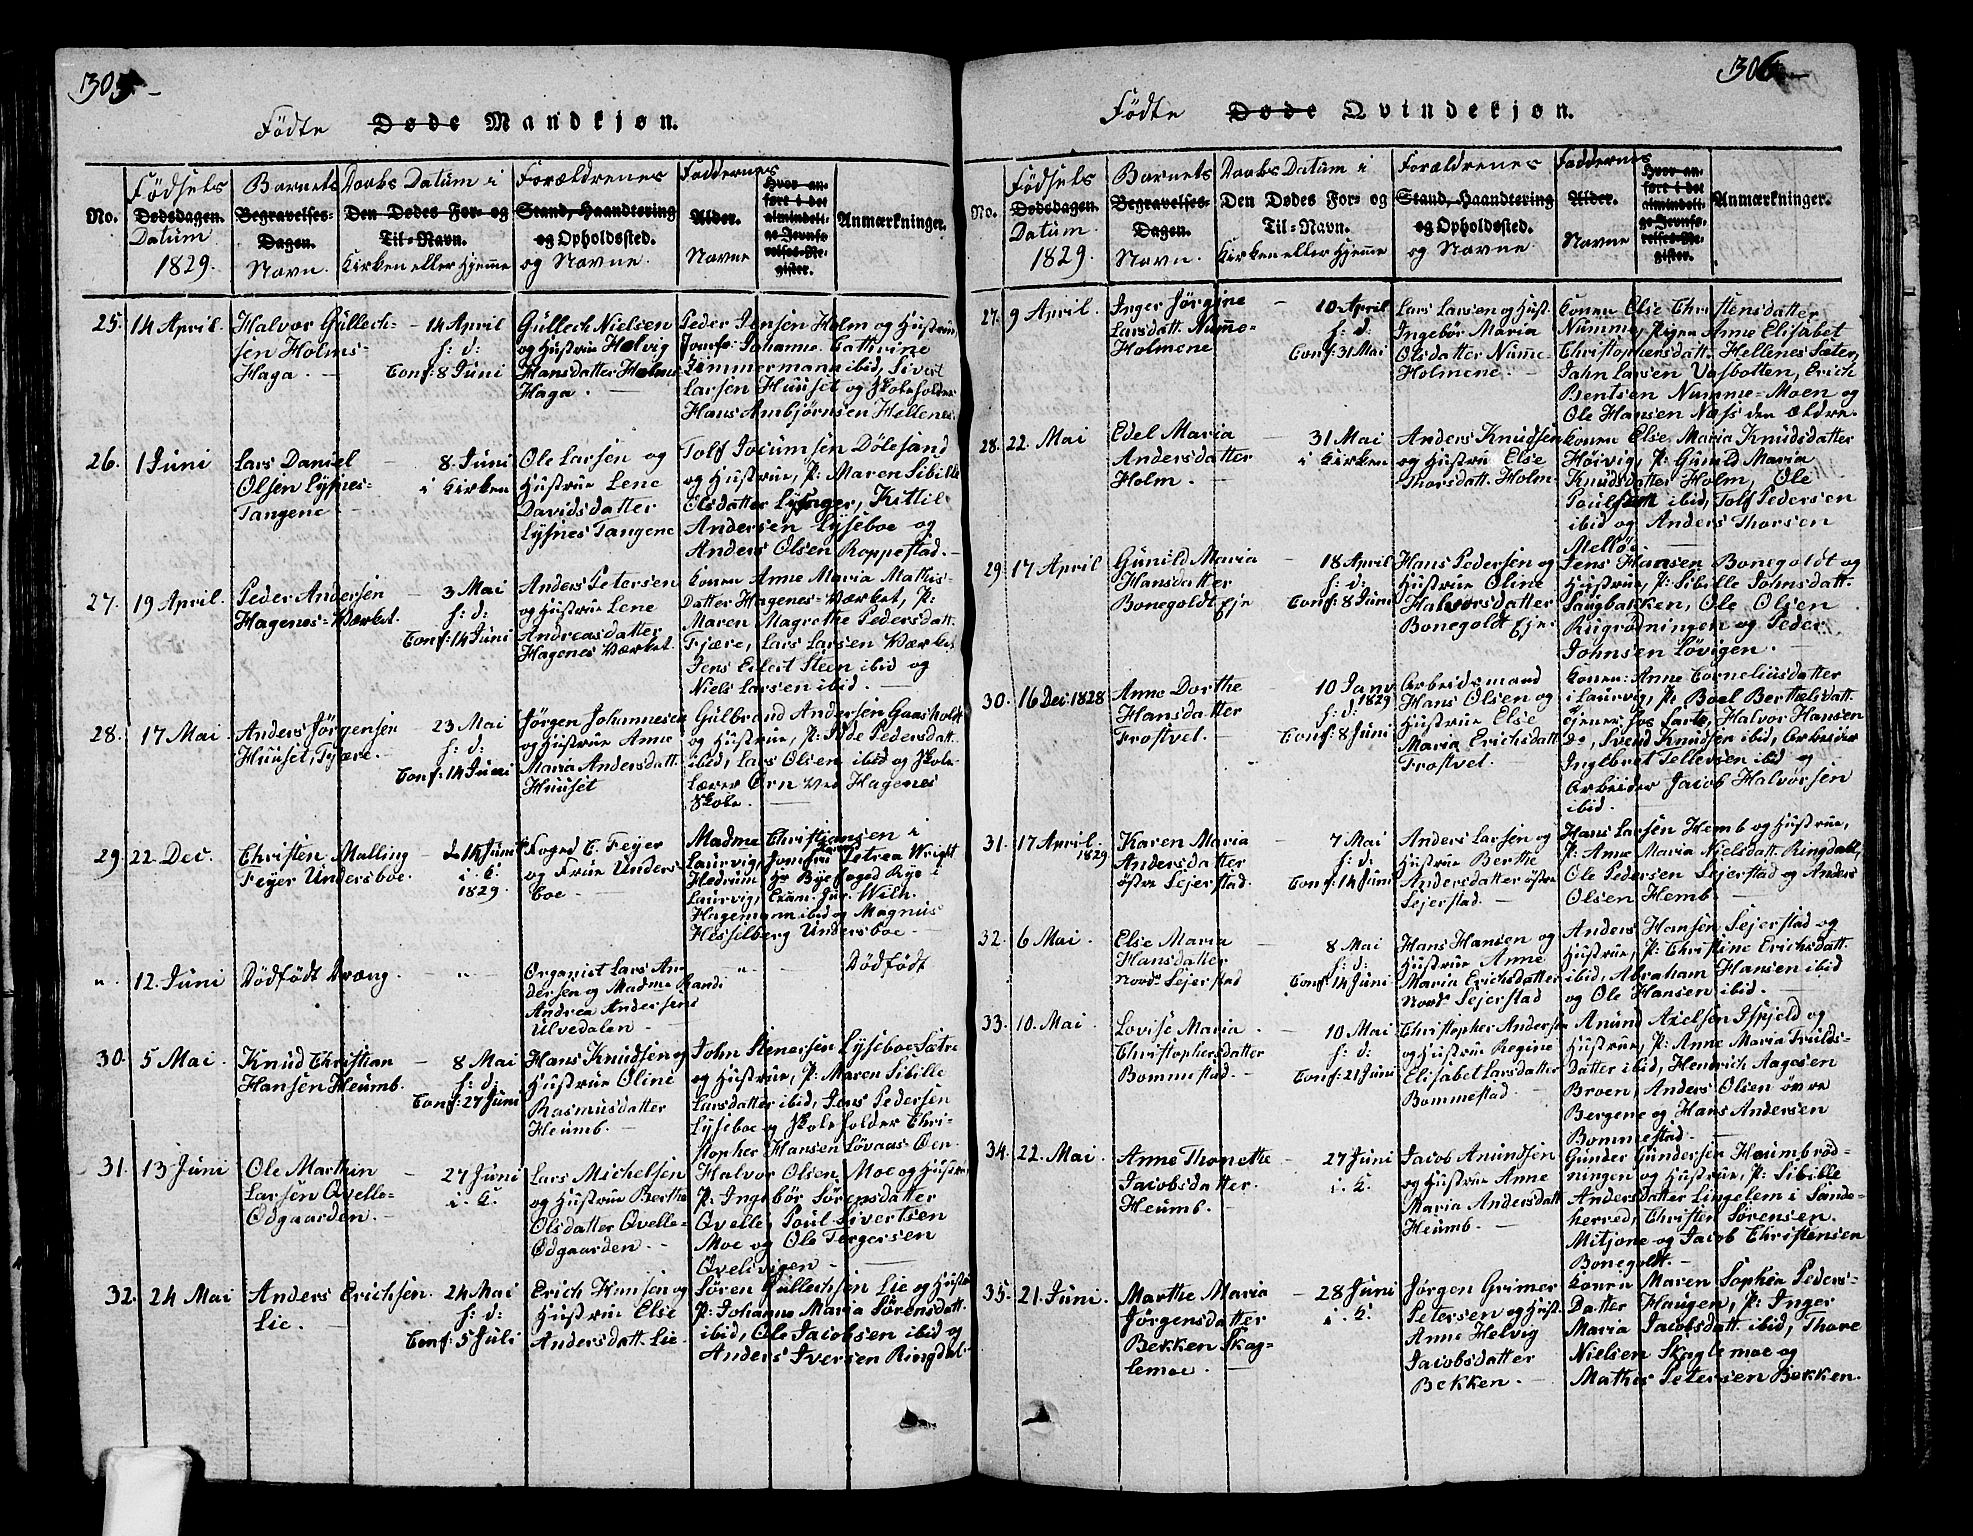 305
Födte Döde Mandkjøn.
No.
Födsels
Dødsdagen.
Datum
1829.
Barnets
Begravelses-
Dagen.
Navn.
Daabs Datum i
Den Dødes For- og
Til-Navn.
Kirken eller Hjemme
Forældrenes
Stand, Haandtering
og Opholdssted.
og Navne.
Faddernes
Alder.
Navne
Hvor an-
føre i det
almindeli-
ge Jevnfø-
relses-Re-
gister.
Anmærkninger.
25. 14 April.
Halvor Gullech-
sen Holms-
Haga. —
14 April
h: d:
Conf: 8 Juni
Gullech Nielsen
og Hustrue Helvig
Hansdatter Holms
Haga. —
Peder Jensen Holm og Hustrue,
Jomfr: Johanne Cathrine
Zimmermann ibid, Sivert
Larsen Huuset og Skoleholder
Hans Ambjørnsen Hellenes.
26. 1 Juni
Lars Daniel
Olsen Lysnes-
Tangene —
8. Juni
i Kirken
Ole Larsen og
Hustrue Lene
Davidsdatter
Lysnes Tangene
Tolf Jocumsen Dölesand
og Hustrue, P: Maren Sibille
Olsdatter, Kittil
Andersen Lyseboe og
Anders Olsen Roppestad. —
27. 19 April.
Peder Andersen
Hagenes-Værket.
3 Mai
h: d:
Conf: 14 Juni
Anders Petersen
og Hustrue Lene
Andreasdatter
Hagenes Værket.
Konen Anne Maria Mathis-
Datter Hagenes-Værket, P:
Maren Magrethe Pedersdatt.
Fjære, Lars Larsen Værket,
Jens Eilert Steen ibid og
Niels Larsen ibid. —
28. 17 Mai
Anders Jörgensen
Huuset, Fjære. —
23 Mai
h: d:
Conf: 14 Juni
Jörgen Johannesen
og Hustrue Anne
Maria Andersdatt.
Huuset
Gulbrand Andersen Gaasholdt
og Hustrue, P: Pedersdatt.
ibid, Lars Olsen ibid og Skole-
Lærer Örn ved Hagenes
Skole. —
29. 22 Dec.
Christen Malling
Feyer Undersboe.
14 Juni
i. K.
1829.
Foged C. Feyer
og Frue Unders-
boe —
Madme Christiansen i
Laurvig, Jomfru Petrea Wright
Hedrum, Hr Byefoged Rye i
Laurvig, Exam. Jur. Wilh.
Hagemann ibid og Magnus
Hesselberg Undersboe. —
" 12. Juni
Dödfödt Dreng.
"
Organist Lars An-
dersen og Madme Randi
Andrea Andersens
Ulvedalen —
" —
Dödfödt
30. 5 Mai
Knud Christian
Hansen Heumb.
8 Mai
h: d:
Conf: 27 Juni
Hans Knudsen og
Hustrue Oline
Rasmusdatter
Heumb. —
John Stenersen Lyseboe Sætre
og Hustrue, P: Maren Sibille
Larsdatter ibid, Jens Pedersen
Lyseboe og Skoleholder Chri-
stopher Hansen Lövaas Öen.
31. 13 Juni
Ole Marthin
Larsen Qvelle-
Ödgaarden. —
27 Juni
i. K.
Lars Michelsen
og Hustrue Berthe
Olsdatter Qvelle-
Ödgaarden. —
Halvor Olsen Moe og Hustrue
P: Ingebör Sörensdatter
Qvelle, Poul Sivertsen
Moe og Ole Torgersen
Qvelivigen —
32. 24 Mai
Anders Erichsen.
Lie. —
24 Mai
h: d:
Conf: 5 Juli
Erich Hansen og
Hustrue Else
Andersdatt. Lie
Sören Gullechsen Lie og Hustrue
P: Johanne Maria Sörensdatt.
ibid, Ole Jacobsen ibid og
Anders Iversen Ringdal.
306
Födte Døde Qvindekjøn.
No.
Födsels
Dødsdagen.
Datum
1829.
Barnets
Begravelses-
Dagen.
Navn.
Daabs Datum i
Den Dødes For- og
Til-Navn.
Kirken eller Hjemme
Forældrenes
Stand, Haandtering
og Opholdssted.
og Navne
Faddernes
Alder.
Navne
Hvor an-
føre i det
almindeli-
ge Jevnfø-
relses-Re-
gister.
Anmærkninger.
27. 9 April.
Inger Jörgine
Larsdatt. Numme-
Holmene
10 April
h: d:
Conf: 31 Mai
Lars Larsen og Hust.
Ingebör Maria
Olsdatter Numme-
Holmene. —
Konen Else Christensdatter
Numme, Pigen Anne Elisabet
Christophersdatt. Hellenes Sæter,
Jahn Larsen Vasbotten, Erich
Bentsen Numme-Moen og
Ole Hansen Næss den Ældre.
28. 22. Mai
Edel Maria
Andersdatter
Holm. —
31 Mai
i Kirken
Anders Knudsen
og Hustrue Else
Thorsdatt. Holm
Konen Else Maria Knudsdatter
Höivig, P: Gunild Maria
Knudsdatter Holm, Ole
Poulsen ibid, Tolf Pedersen
ibid og Anders Thorsen
Mellöe
29. 17 April.
Gunild Maria
Hansdatter
Bonegoldt Eje
18 April
h: d:
Conf: 8 Juni
Hans Pedersen og
Hustrue Oline
Halvorsdatter
Bonegoldt Eje.
Jens Hansen Bonegoldt og
Hustrue, P: Sibille Johnsdatt.
Saugbakken, Ole Olsen
Rugrödningen og Peder
Johnsen Lövigen. —
30. 16 Dec. 1828
Anne Dorthe
Hansdatter
Frostvet. —
10 Janv
1829
h: d:
Conf: 8 Juni
Arbeidsmand
Hans Olsen og
Hustrue Else
Maria Erichsdatt.
Frostvet —
Konen: Anne Corneliusdatter
i Laurvig, P: Boel Berthelsdatt.
Halvor Hansen
Do, Svend Knudsen ibid, Arbeider
Ingebret Tellevsen ibid og
Arbeider Jacob Halvorsen
ibid.
31. 17 April.
1829
Karen Maria
Andersdatter
östre Sejerstad.
7 Mai
h: d:
Conf: 14 Juni
Anders Larsen og
Hustrue Berthe
Andersdatter östre
Sejerstad. —
Hans Larsen Hemb og Hustrue,
P: Anne Maria Nielsdatt. Ringdall,
Ole Pedersen Sejerstad og Anders
Olsen Hemb. —
32. 6 Mai.
Else Maria
Hansdatter
nord. Sejerstad
8 Mai
h: d:
Conf: 14 Juni
Hans Hansen og
Hustrue Anne
Maria Erichsdatter
Nord. Sejerstad
Anders Hansen Sejerstad og
Hustrue, P: Christine Erichsdatt.
ibid, Abraham Hansen ibid
og Ole Hansen ibid. —
33. 10. Mai
Lovise Maria
Christophersdatter
Bommestad. —
10 Mai
h: d:
Conf: 21 Juni
Christopher Andersen
og Hustrue Regine
Elisabet Larsdatter
Bommestad. —
Anund Axelsen Skjold og
Hustrue, P: Anne Maria Truids-
Datter ibid, Hendrich Aagesen
Broen, Anders Olsen övre
Bergene og Hans Andersen
Bommestad. —
34. 22. Mai
Anne Thonette
Jacobsdatter.
Heumb. —
27 Juni
i. K.
Jacob Anundsen
og Hustrue Anne
Maria Andersdatt
Heumb. —
Gunder Gundersen Heumbröd-
ningen og Hustrue, P: Sibille
Andersdatter Lingelem i Sande-
herred, Christen Sörensen
Mitjone og Jacob Christensen
Bonegoldt. —
35. 21. Juni.
Marthe Maria
Jörgensdatter
Bekken Skag-
lemoe. —
28 Juni
i. K.
Jörgen Grimer
Petersen og Hust.
Anne Helvig
Jacobsdatter
Bekken. —
Konen Maren Sophia Peders-
Datter Haugen, P: Inger
Maria Jacobsdatt. ibid, Thore
Nielsen Skaglemoe og
Mathis Petersen Bekken.